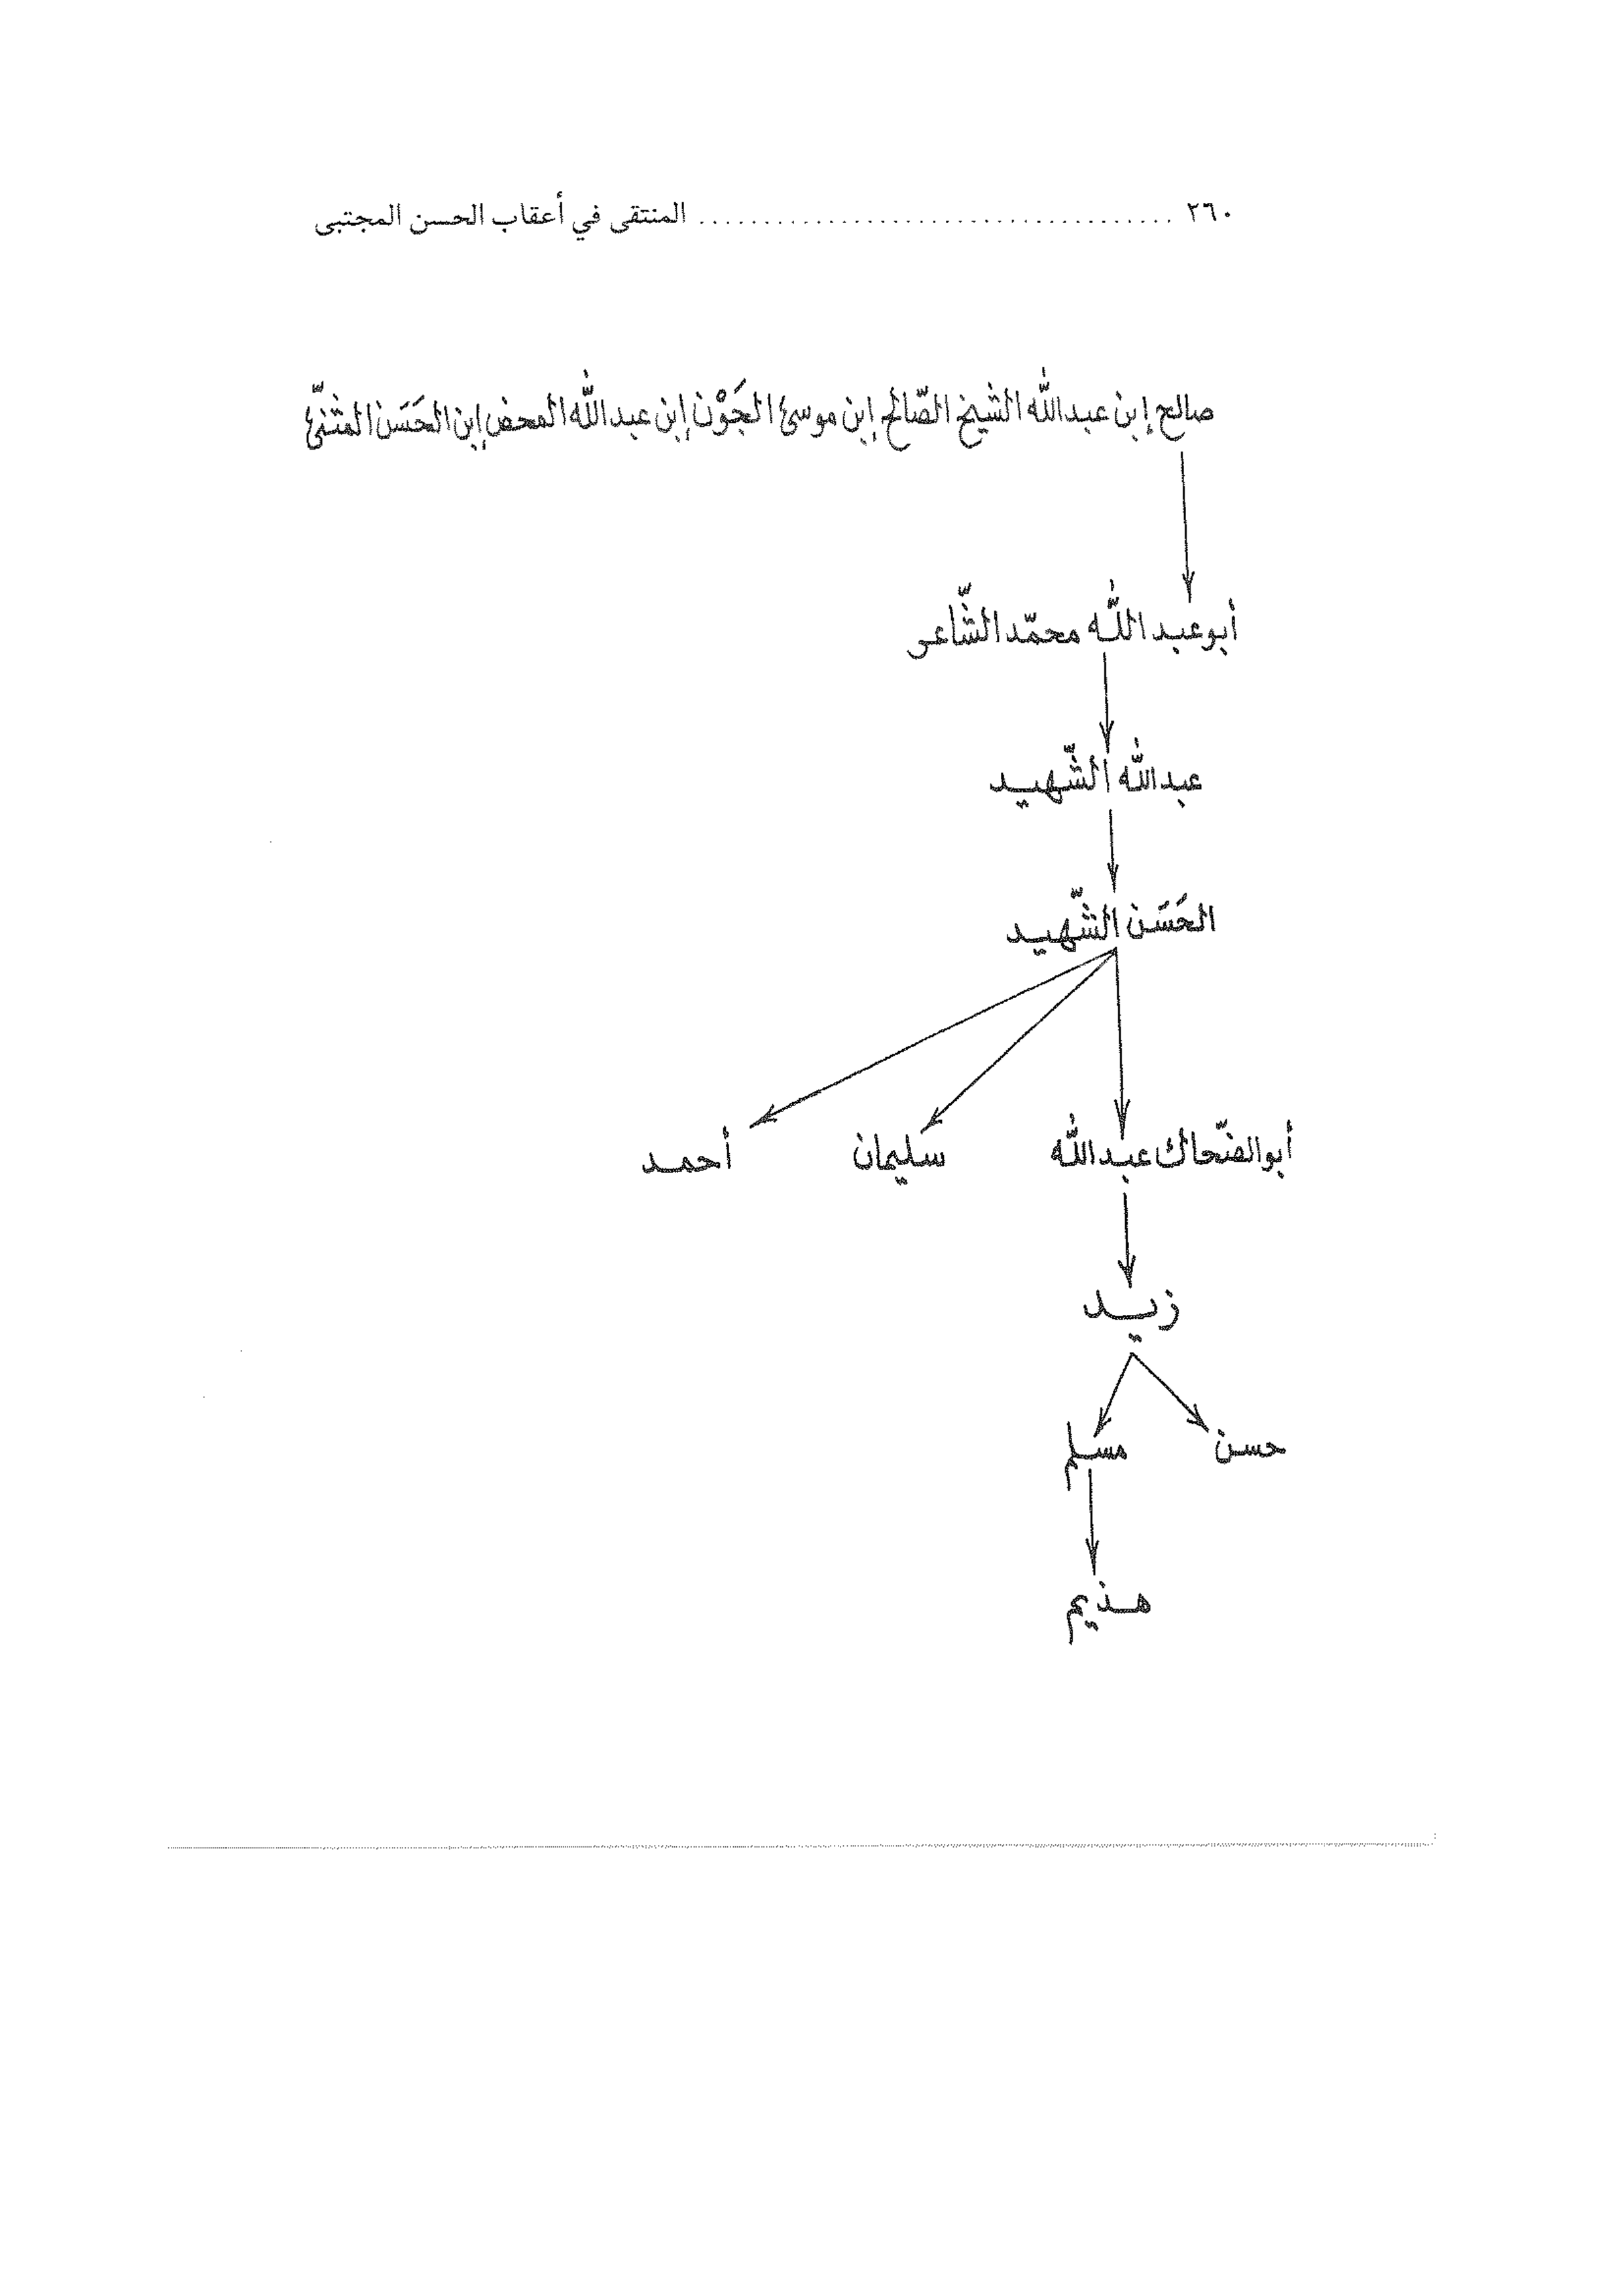 ٢٦٠ ................................... المنتقى في أعقاب الحسن المجتبى
صالح إبن عبدالله الشيخ الصّالح إبن موسىٰ الجَوْن إبن عبدالله المحض إبن الحَسَن المثنّىٰ
أبوعبدالله محمّد الشّاعر
عبدالله الشّهيد
الحَسَن الشّهيد
أبوالضّحاك عبدالله سليمان أحمد
زيد
حسن مسلم
هذيم